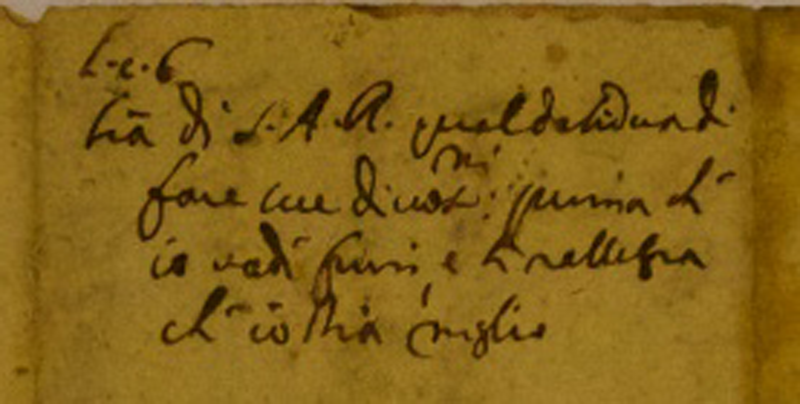 L. c. 6
lrã di S. A. R. qual desidera di
fare mie divot.ni prima ch'
io vadi fuori, e si rallegra
ch' io stia meglio